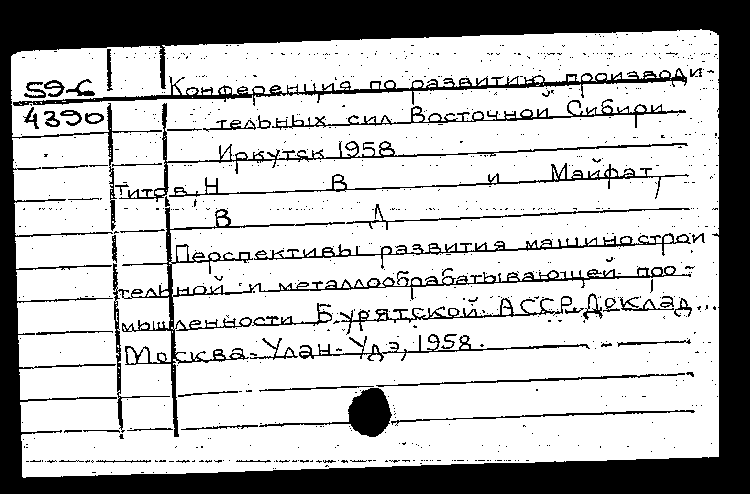 59-6 Конференция по развитию производи-
4390 тельных сил Восточной Сибири
Иркутск 1958
Титов, Н В и Майфат,
В Д
Перспективы развития машинострои-
тельной и металлообрабатывающей про-
мышленности Бурятской АССР. Доклад...
Москва-Улан-Удэ, 1958.